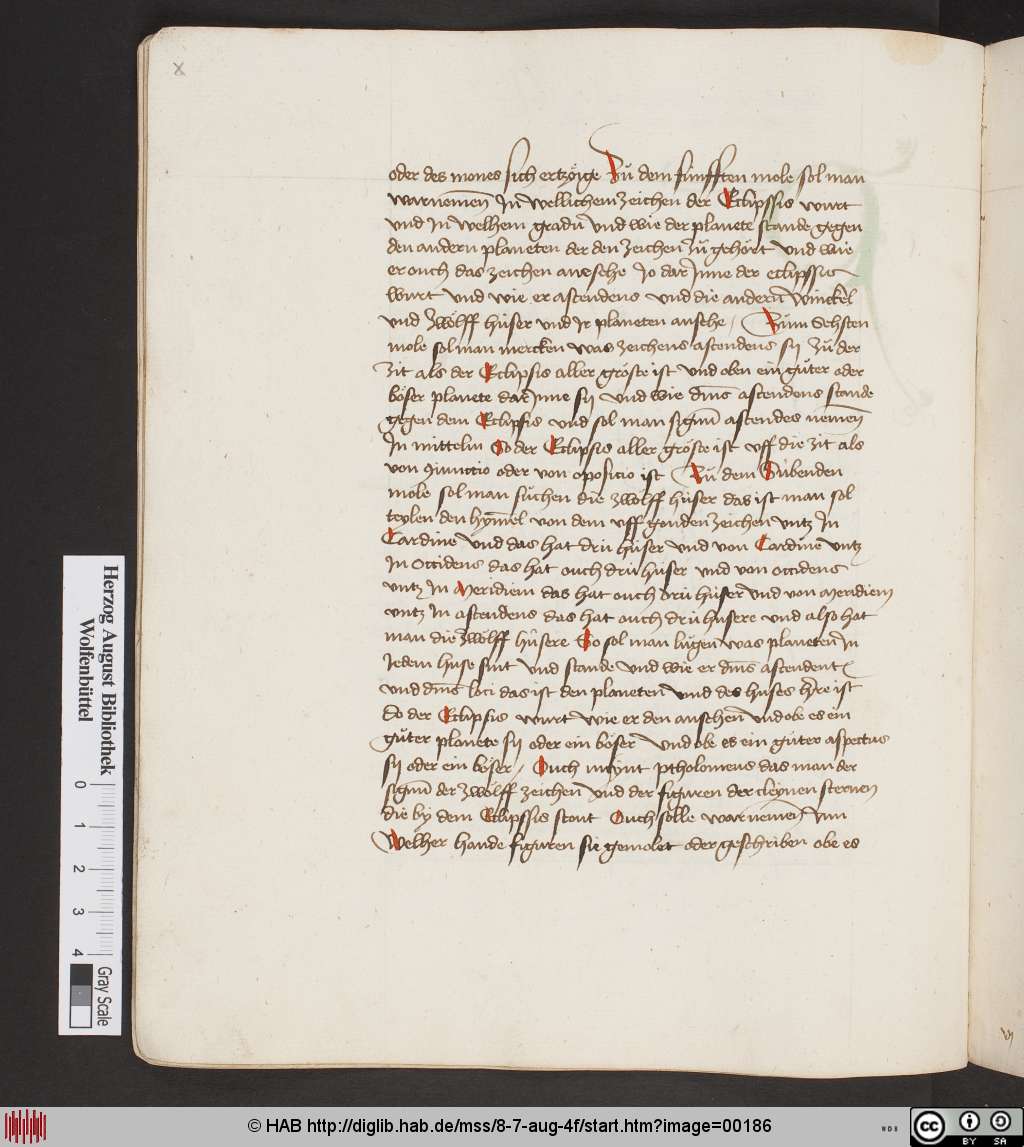 x
oder des mones sich ertzöige Zů dem fünfften mole sol man
warnemen̄ In wellichem zeichen der Eclipssis wurt
vnd In welhem gradū vnd wie der planete stande gegen
den andern planeten der den zeichen zů gehört vnd wie
er ouch das zeichen ansehe Jo dar Inne der eclipssus
wurt vnd wie er ascendens vnd die andern̄ winckel
vnd zwölff hüser vnd Ir planeten ansehe / Züm Sehsten
mole sol man mercken was zeichens ascendens sy Zů der
Zit als der Eclipsis aller gröste ist vnd oben ein gůter oder
böser planete dar Inne sy vnd wie dm̄s ascendens stande
gegen dem Eclipsis vnd sol man signū ascendes nemen̄
In mitteln So der Eclipsis aller gröste ist vff die zit als
von 9iunctio oder von oposicio ist Zů dem Sübenden
mole sol man süchen die zwölff hüser das ist man sol
teylen den hym̄el von dem vff gonden zeichen vntz In
Cardine vnd das hat drü hüser vnd von Cardine vntz
In occidens das hat ouch drü hüser vnd von occidens
vntz In Meridiem das hat ouch drü hüser vnd von meridiem
vntz In ascendens das hat ouch drü husere vnd also hat
man die zwölff hüsere So sol man lůgen was planeten̄ In
Jedem huse sint vnd stande vnd wie er dm̄s ascendent
vnd dm̄s loci das ist den planeten̄ vnd des huses h're ist
do der Eclipsis wurt wie er den ansehen̄ vnd obe es ein
gůter planete sy oder ein böser vnd obe es ein gůter aspectus
sy oder ein böser / Ouch meynt ptholomeus das man der
signū der zwölff zeichen̄ vnd der figuren der cleynen sternen
die by dem Eclipssis stont Ouch solle warnemen̄ Inn
Welher hande figuren sie gemolet oder geschriben obe es
Herzog August Bibliothek
Wolfenbüttel
0 1 2 3 4
Gray Scale
© HAB http://diglib.hab.de/mss/8-7-aug-4f/start.htm?image=00186
WDB
cc BY SA